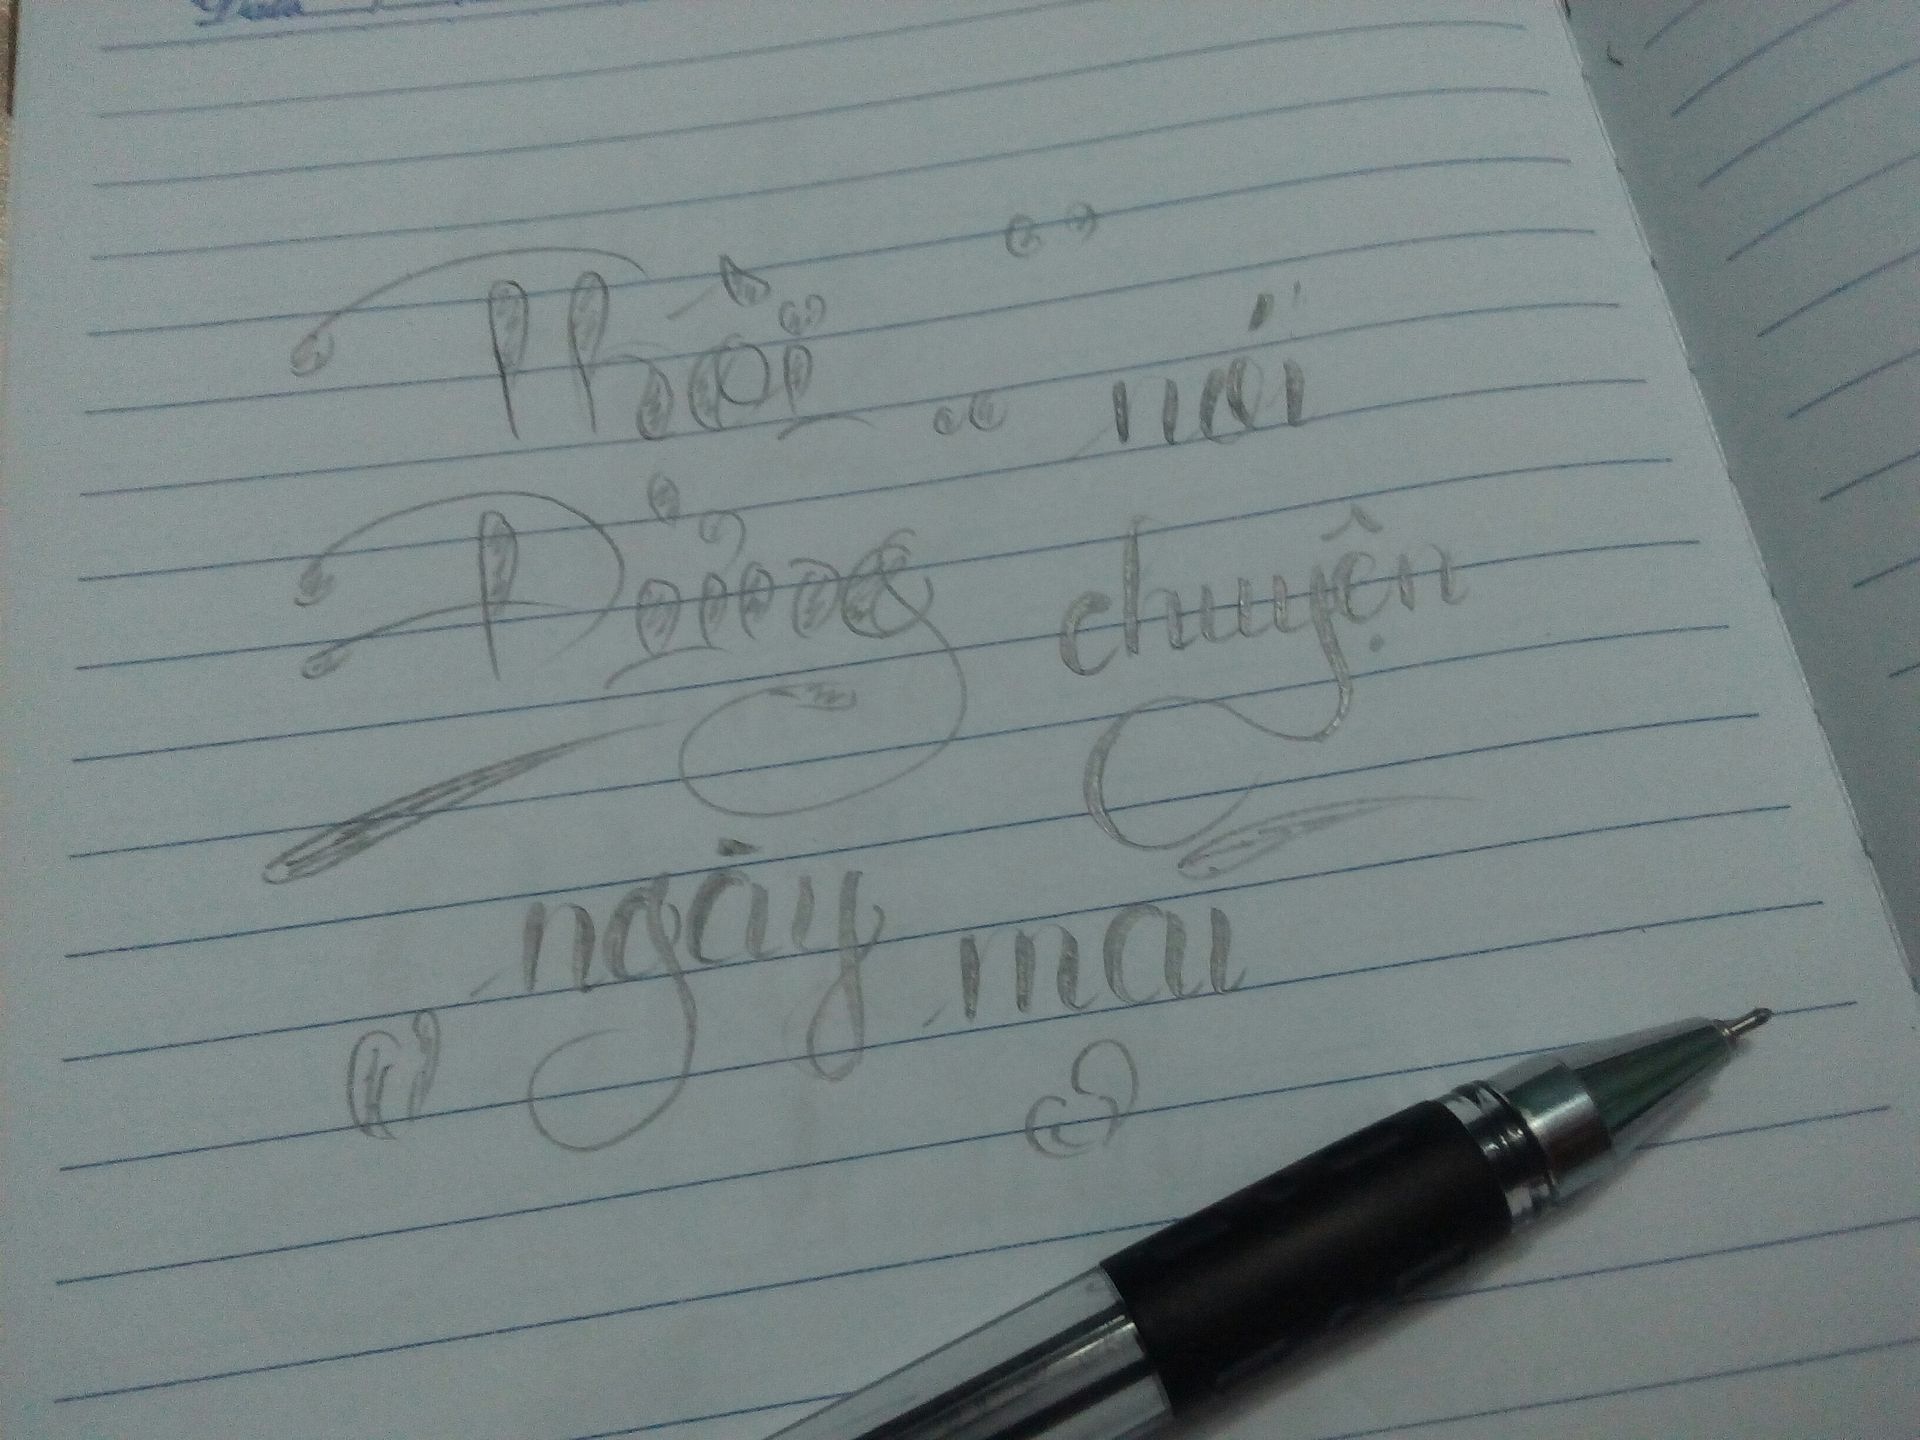 Thôi nói
Đừng chuyện
ngày mai